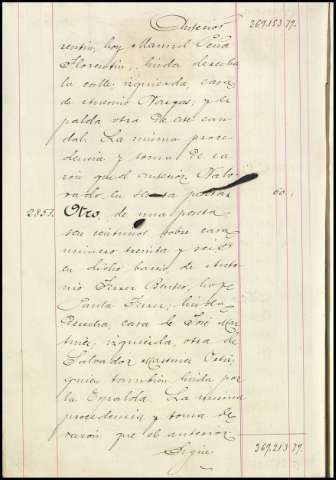 Anterior 369.153.79.
rentin, hoy Manuel Peña
Florentin, linda derecha
la calle, izquierda, casa
de Antonio Vargas, y es
palda otra de este cau
dal. La misma proce
dencia y toma de ra
zón que el anterior. Valo
rado en sesenta pesetas 60.
2851. Otro, de una peseta
seis céntimos sobre casa
número treinta y seis
en dicho barrio de Anto
nio Ferrer, hoy
Ferrer; linda
derecha, casa de José Mar
tínez, izquierda, otra de
Salvador Martínez
quien también linda por
la Espalda. La misma
procedencia y toma de
razón que el anterior
Sigue 369.213.79.